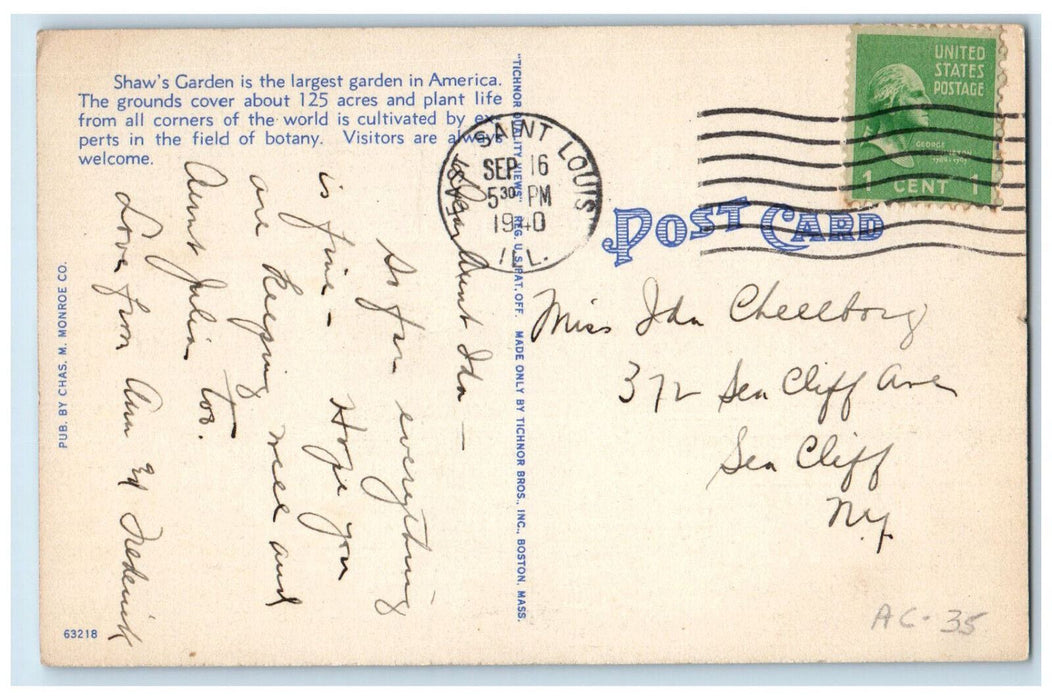 Shaw's Garden is the largest garden in America.
The grounds cover about 125 acres and plant life
from all corners of the world is cultivated by ex-
perts in the field of botany. Visitors are always
welcome.
Dear Aunt Ida —
So far everything
is fine - Hope you
are keeping well and
Aunt Julia too.
Love from Ann Ed Frederick
PUB. BY CHAS. M. MONROE CO.
63218
"TICHNOR QUALITY VIEWS" REG. U.S. PAT. OFF. MADE ONLY BY TICHNOR BROS., INC., BOSTON, MASS.
EAST SAINT LOUIS
SEP 16
5 30 PM
1940
ILL.
UNITED
STATES
POSTAGE
GEORGE WASHINGTON
1 CENT 1
POST CARD
Miss Ida
372 Sea Cliff Ave
Sea Cliff
N.Y.
AC-35